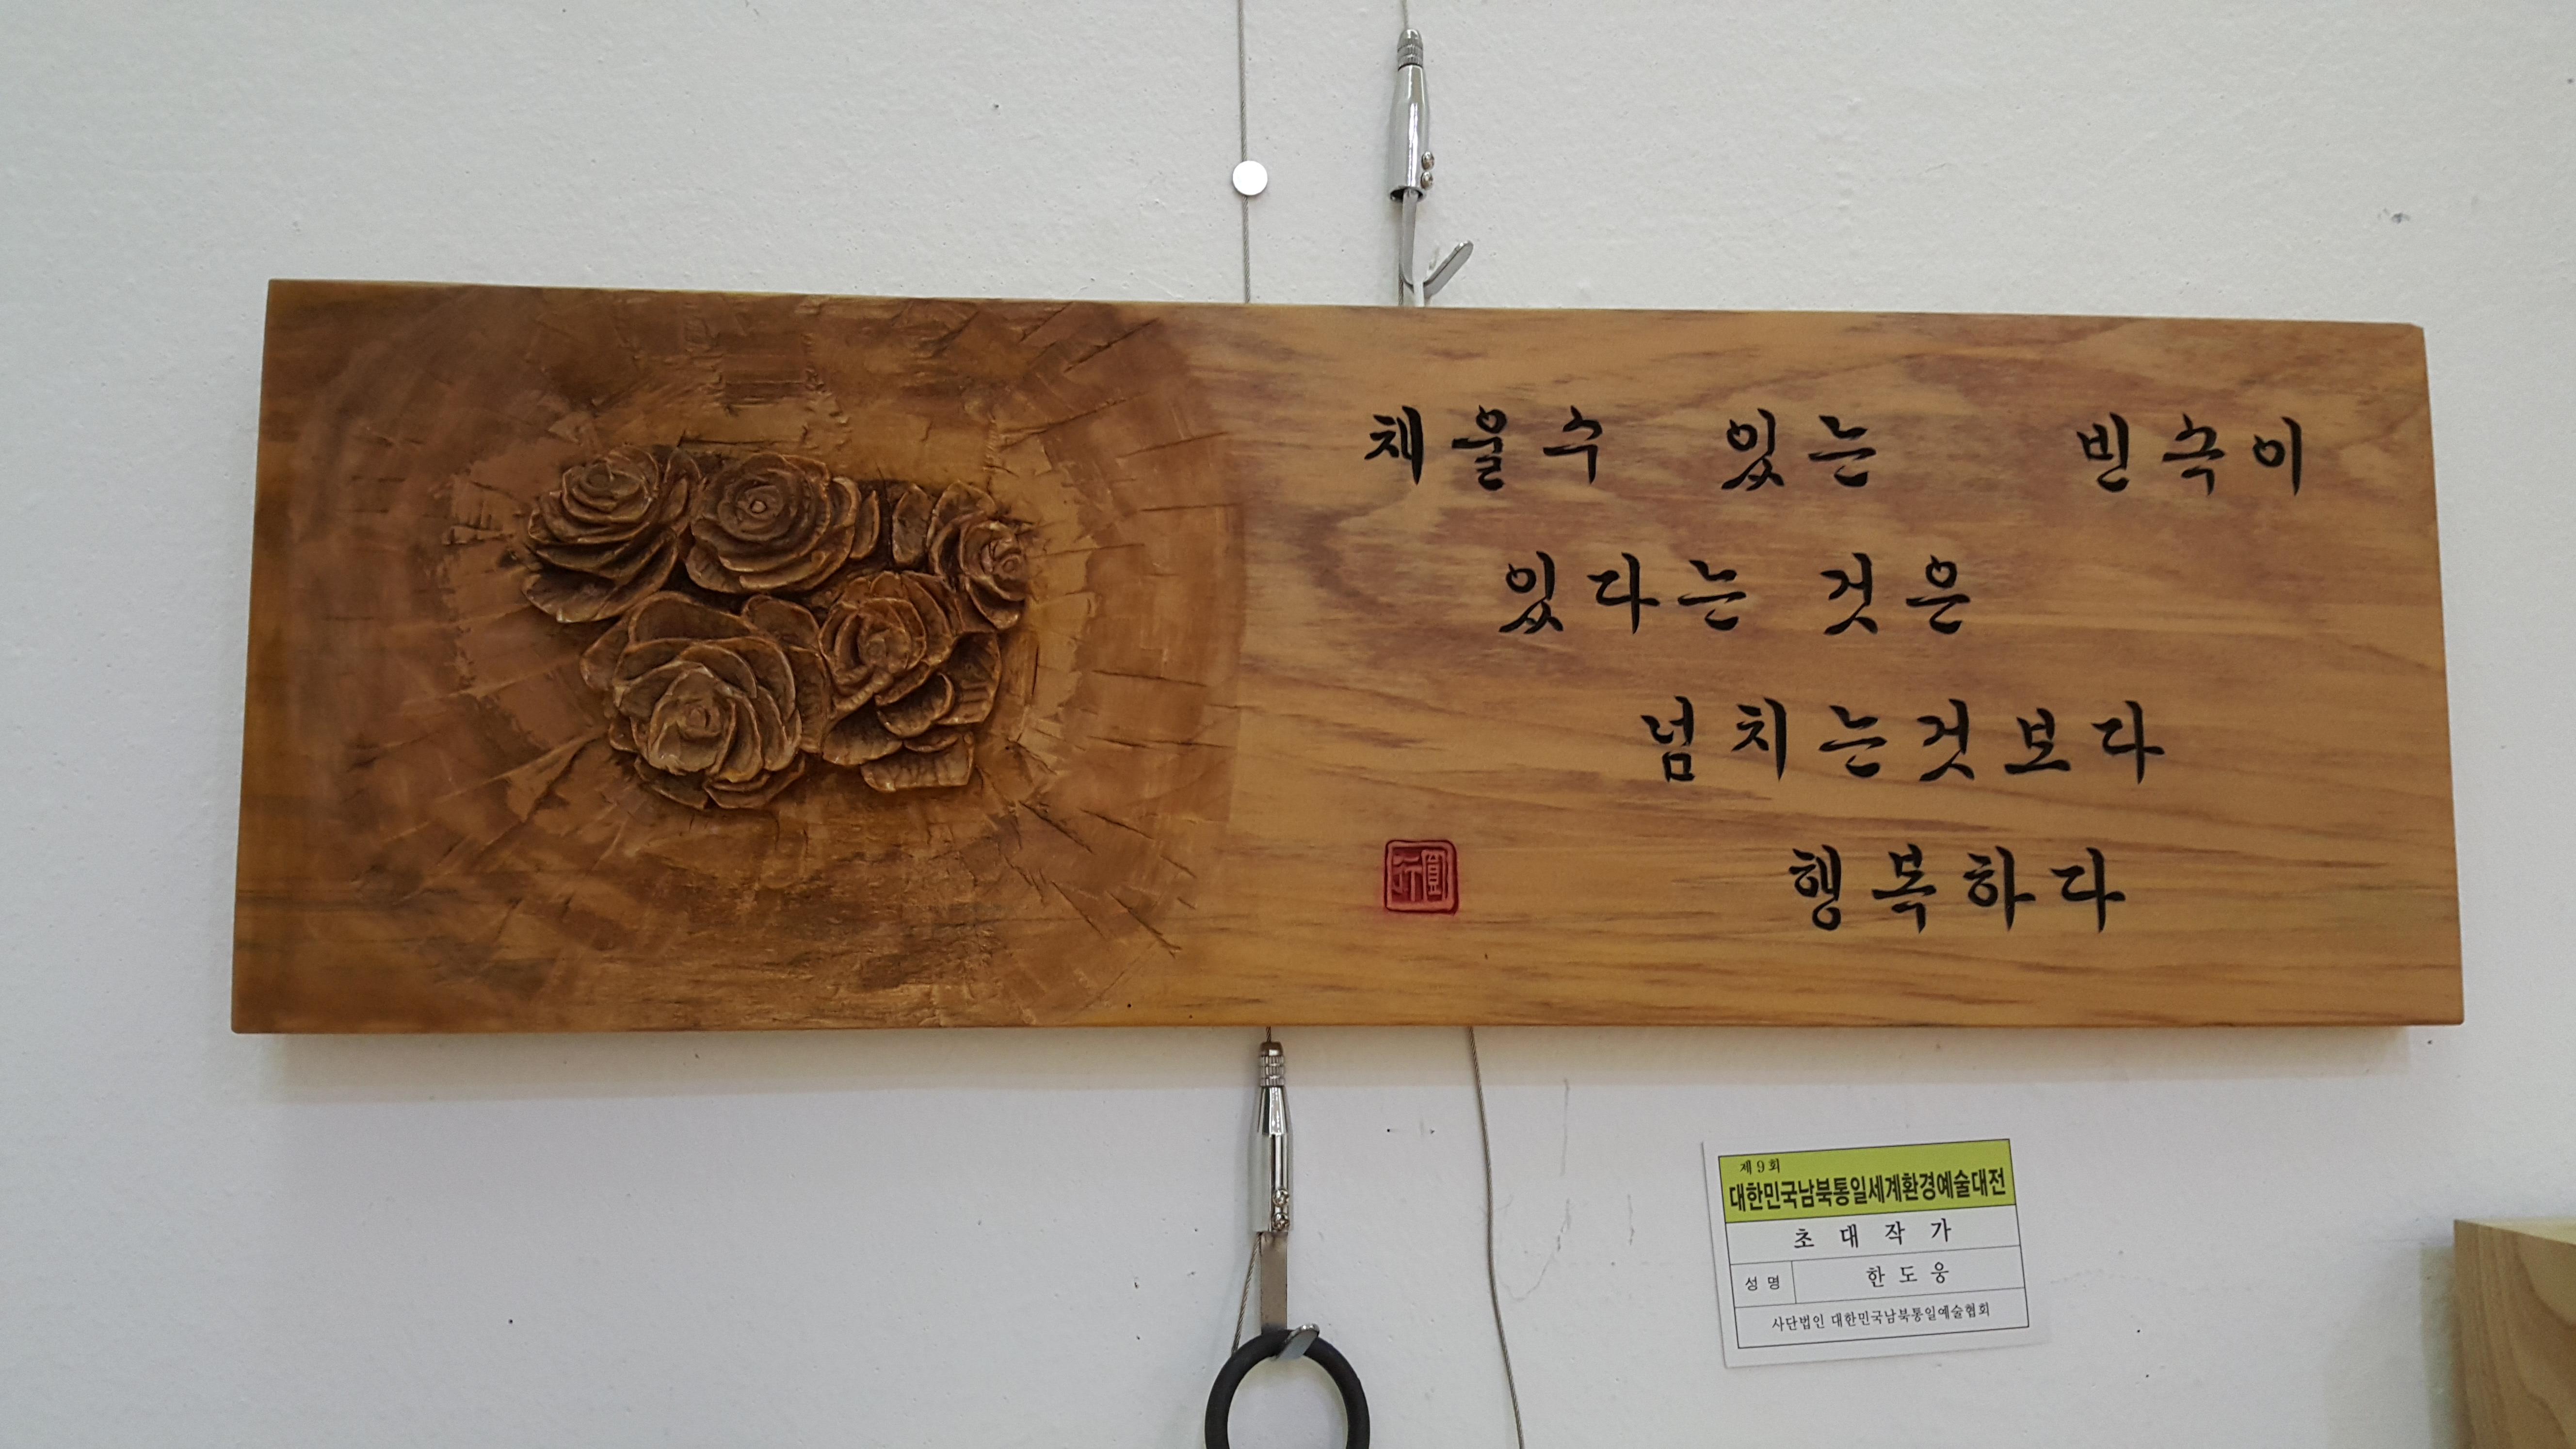 채울수 있는 빈속이
있다는 것은
넘치는것보다
행복하다
제9회
대한민국남북통일세계환경예술대전
초대작가
성명 한도웅
사단법인 대한민국남북통일예술협회